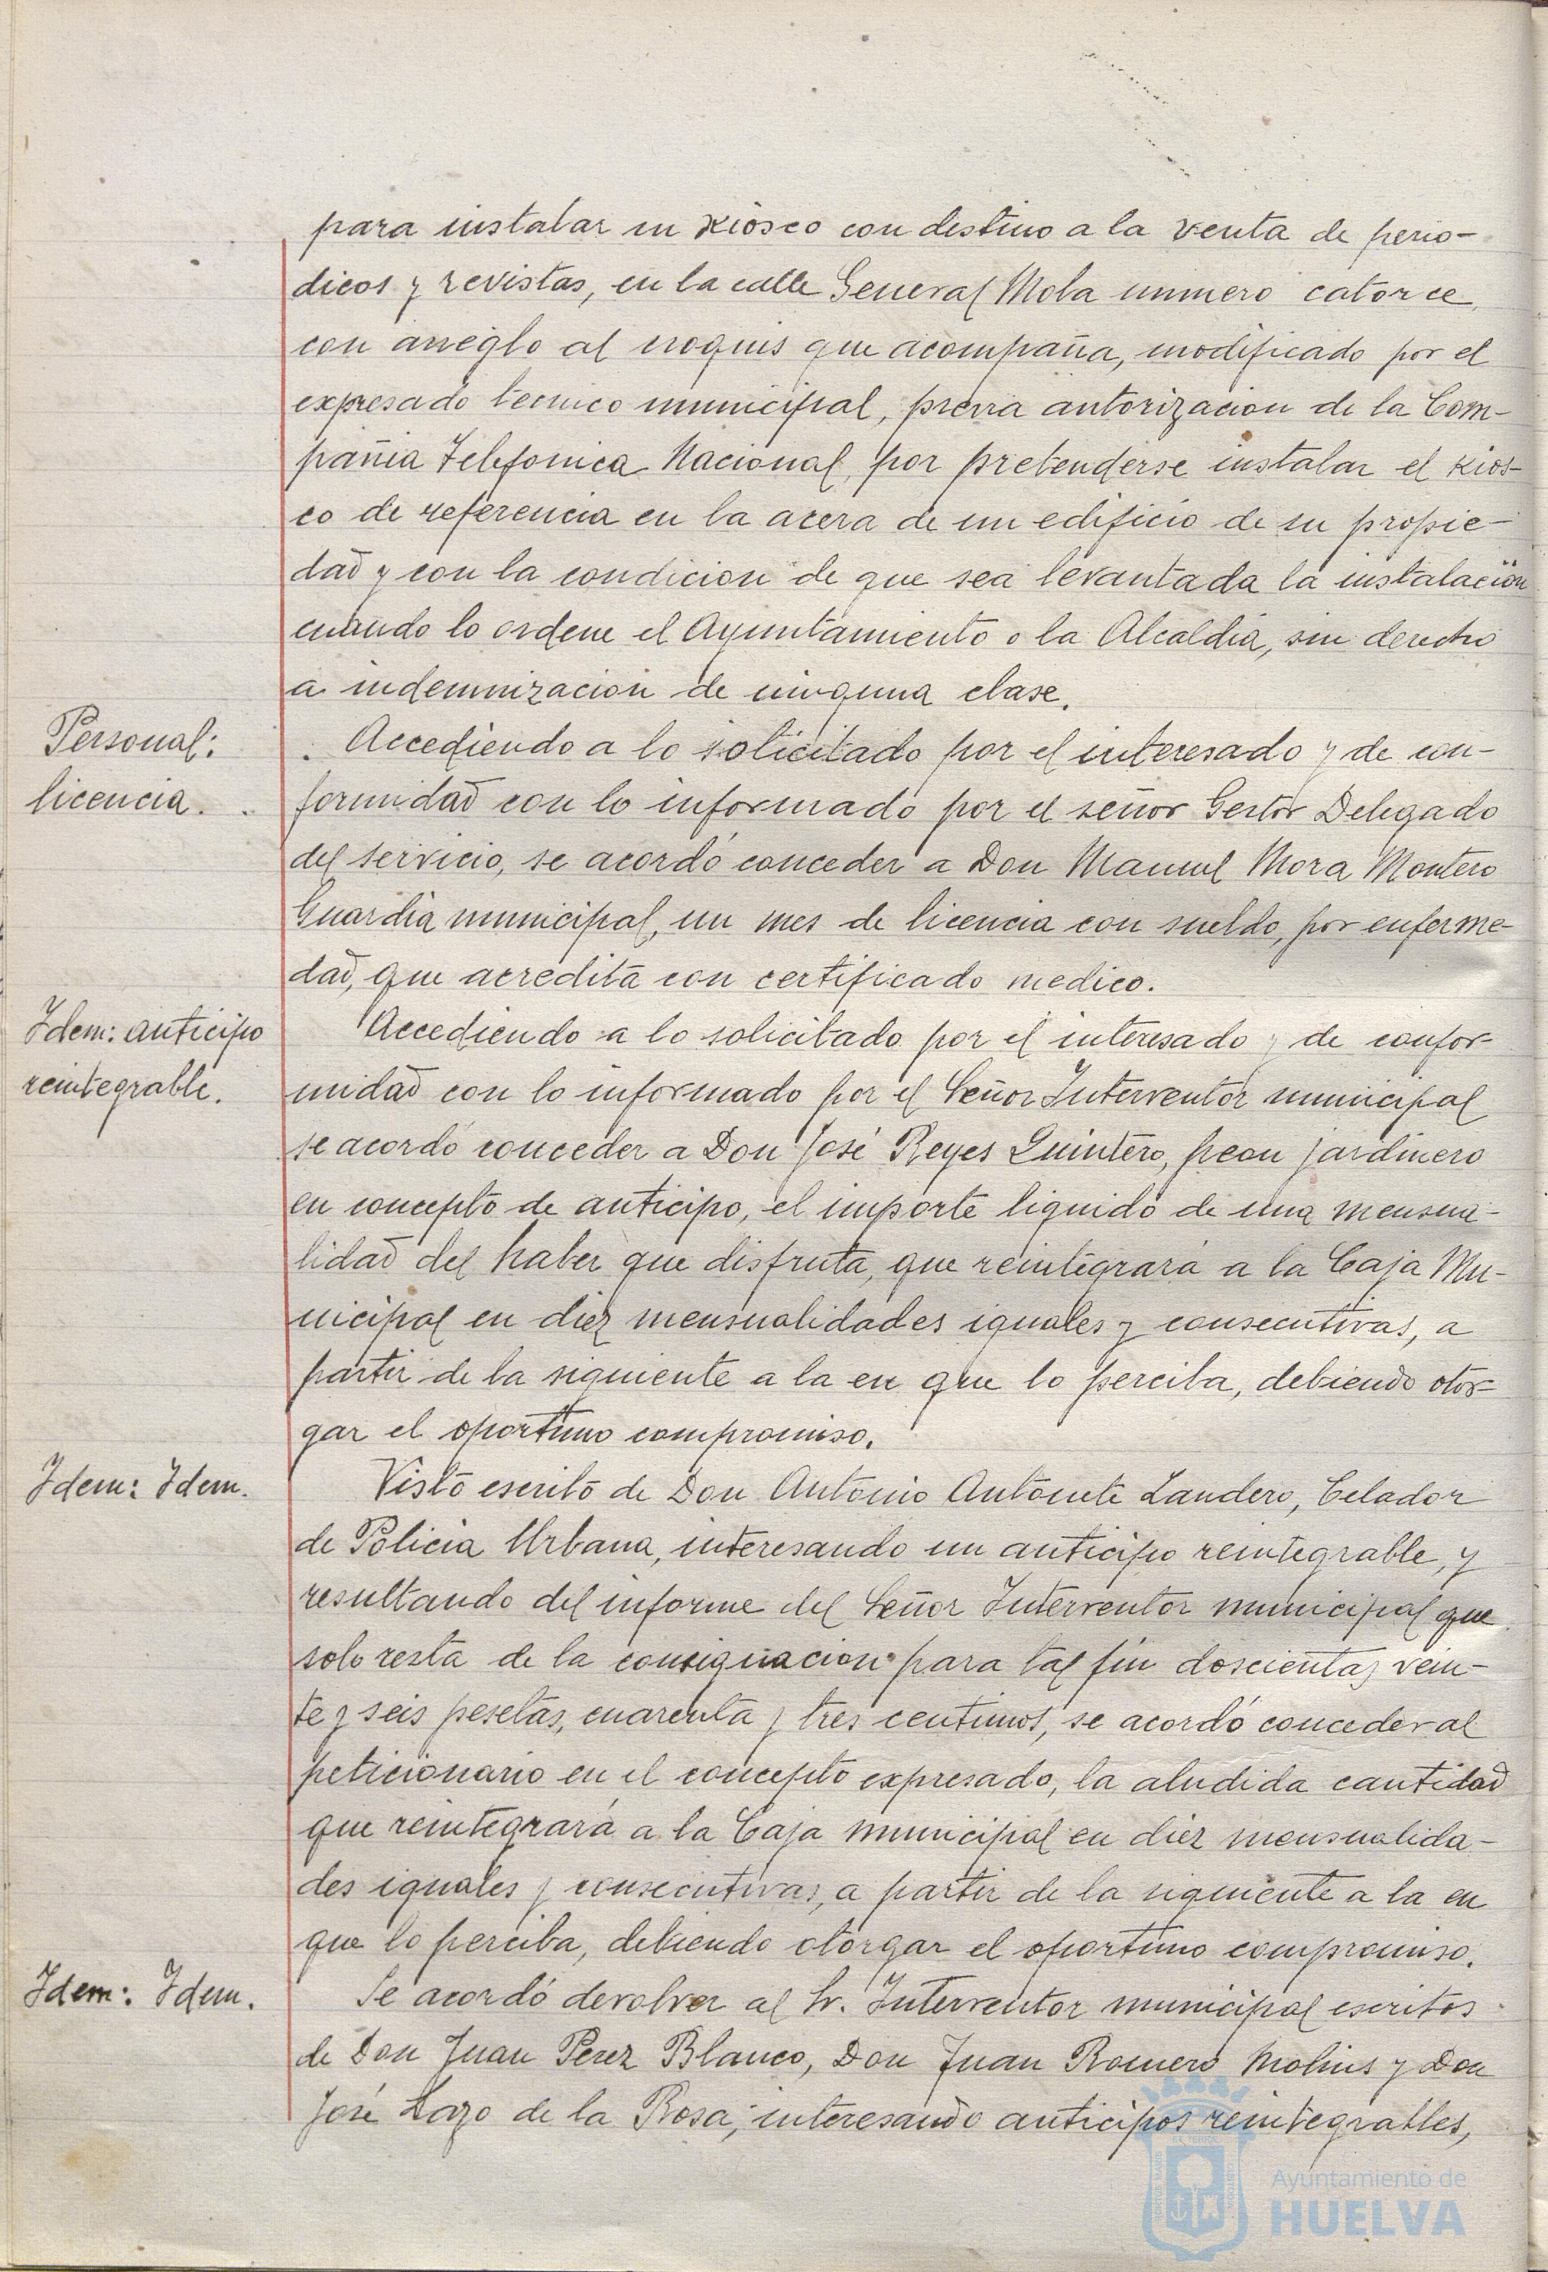 para instalar un kiosco con destino a la venta de perio-
dicos y revistas, en la calle General Mola numero catorce,
con arreglo al croquis que acompaña, modificado por el
expresado tecnico municipal, previa autorizacion de la Com-
pañia Telefonica Nacional, por pretenderse instalar el kios-
co de referencia en la acera de un edificio de su propie-
dad y con la condicion de que sea levantada la instalación
cuando lo ordene el Ayuntamiento o la Alcaldia, sin derecho
a indemnizacion de ninguna clase.
Personal:
licencia.
Accediendo a lo solicitado por el interesado y de con-
formidad con lo informado por el señor Gestor Delegado
del servicio, se acordó conceder a Don Manuel Mora Montero
Guardia municipal, un mes de licencia con sueldo, por enferme-
dad, que acredita con certificado medico.
Idem: anticipo
reintegrable.
Accediendo a lo solicitado por el interesado y de confor-
midad con lo informado por el Señor Interventor municipal
se acordó conceder a Don José Reyes Quintero, peon jardinero
en concepto de anticipo, el importe liquido de una mensua-
lidad del haber que disfruta, que reintegrará a la Caja Mu-
nicipal en diez mensualidades iguales y consecutivas, a
partir de la siguiente a la en que lo perciba, debiendo otor-
gar el oportuno compromiso.
Idem: Idem.
Visto escrito de Don Antonio Antonete Landero, Celador
de Policia Urbana, interesando un anticipo reintegrable, y
resultando del informe del Señor Interventor municipal que
solo resta de la consignacion para tal fin doscientas vein-
te y seis pesetas, cuarenta y tres centimos, se acordó conceder al
peticionario en el concepto expresado, la aludida cantidad
que reintegrará a la Caja municipal en diez mensualida-
des iguales y consecutivas, a partir de la siguiente a la en
que lo perciba, debiendo otorgar el oportuno compromiso.
Idem: Idem.
Se acordó devolver al Sr. Interventor municipal escritos
de Don Juan Perez Blanco, Don Juan Romero Molins y Don
José Lazo de la Rosa, interesando anticipos reintegrables,
Ayuntamiento de
HUELVA